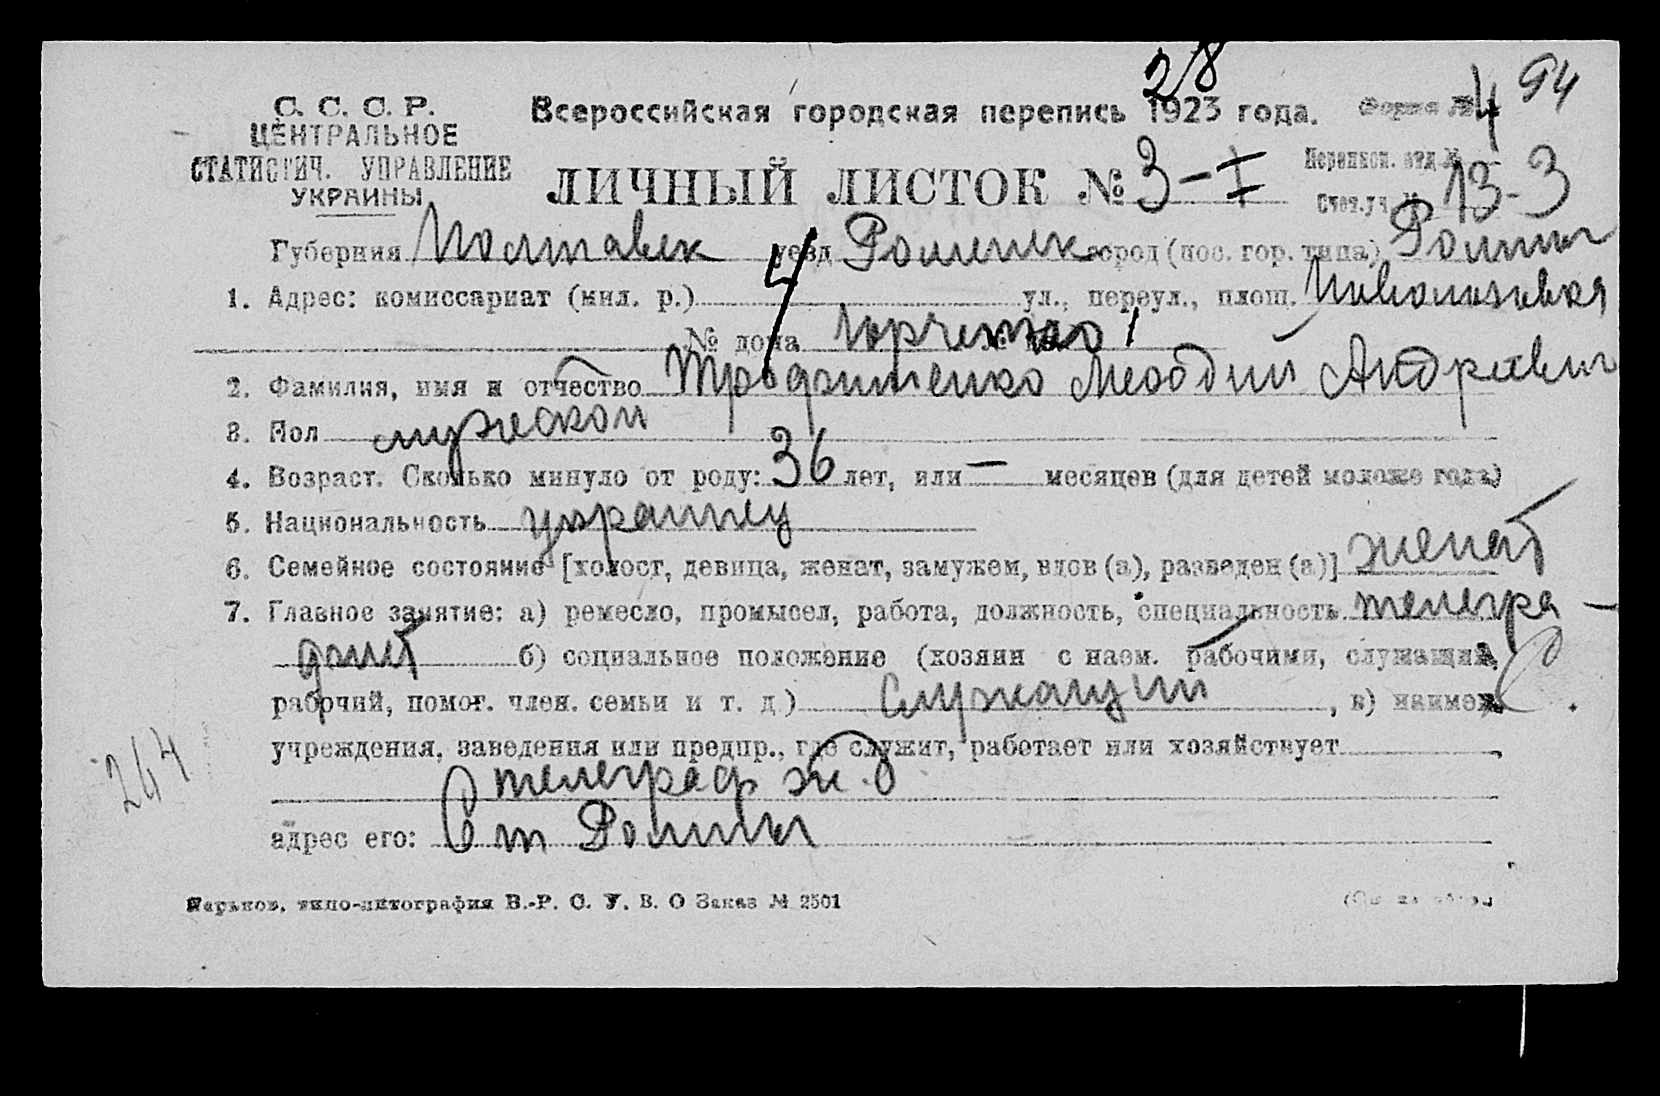 28
С. С. С. Р.
ЦЕНТРАЛЬНОЕ
СТАТИСТИЧ. УПРАВЛЕНИЕ
УКРАИНЫ
Всероссийская городская перепись 1923 года.
Форма № 4 94
ЛИЧНЫЙ ЛИСТОК № 3-I
Переписн. отд. №
Счет. уч. № 13-3
Губерния Полтавск уезд Роменск город (пос. гор. типа) Ромны
1. Адрес: комиссариат (мил. р.) 4 ул., переул., площ.
№ дома Юрченко 1
2. Фамилия, имя и отчество Трофименко Меодий Андреевич
3. Пол мужской
4. Возраст. Сколько минуло от роду: 36 лет, или — месяцев (для детей моложе года)
5. Национальность украинец
6. Семейное состояние [холост, девица, женат, замужем, вдов (а), разведен (а)] женат
7. Главное занятие: а) ремесло, промысел, работа, должность, специальность телегра-
фист б) социальное положение (хозяин с наем. рабочими, служащий,
рабочий, помог. член. семьи и т. д.) Служащий, в) наимен.
учреждения, заведения или предпр., где служит, работает или хозяйствует
телеграф ж.д
адрес его: Ст Ромны
264
Харьков, типо-литография В.-Р. С. У. В. О Заказ № 2501